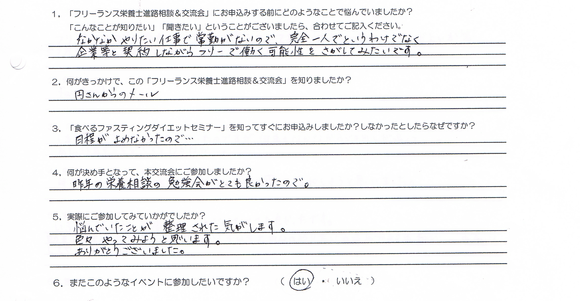 1．「フリーランス栄養士進路相談＆交流会」にお申込みする前にどのようなことで悩んでいましたか？
「こんなことが知りたい」「聞きたい」ということがございましたら、合わせてご記入ください。
なかなかやりたい仕事で常勤がないので、完全一人でというわけでなく
企業等と契約しながらフリーで働く可能性をさがしてみたいです。
2．何がきっかけで、この「フリーランス栄養士進路相談＆交流会」を知りましたか？
円さんからのメール
3．「食べるファスティングダイエットセミナー」を知ってすぐにお申込みしましたか？しなかったとしたらなぜですか？
日程がよめなかったので…
4．何が決め手となって、本交流会にご参加しましたか？
昨年の栄養相談の勉強会がとても良かったので。
5．実際にご参加してみていかがでしたか？
悩んでいたことが整理された気がします。
色々やってみようと思います。
ありがとうございました。
6．またこのようなイベントに参加したいですか？ （ はい ・ いいえ ）